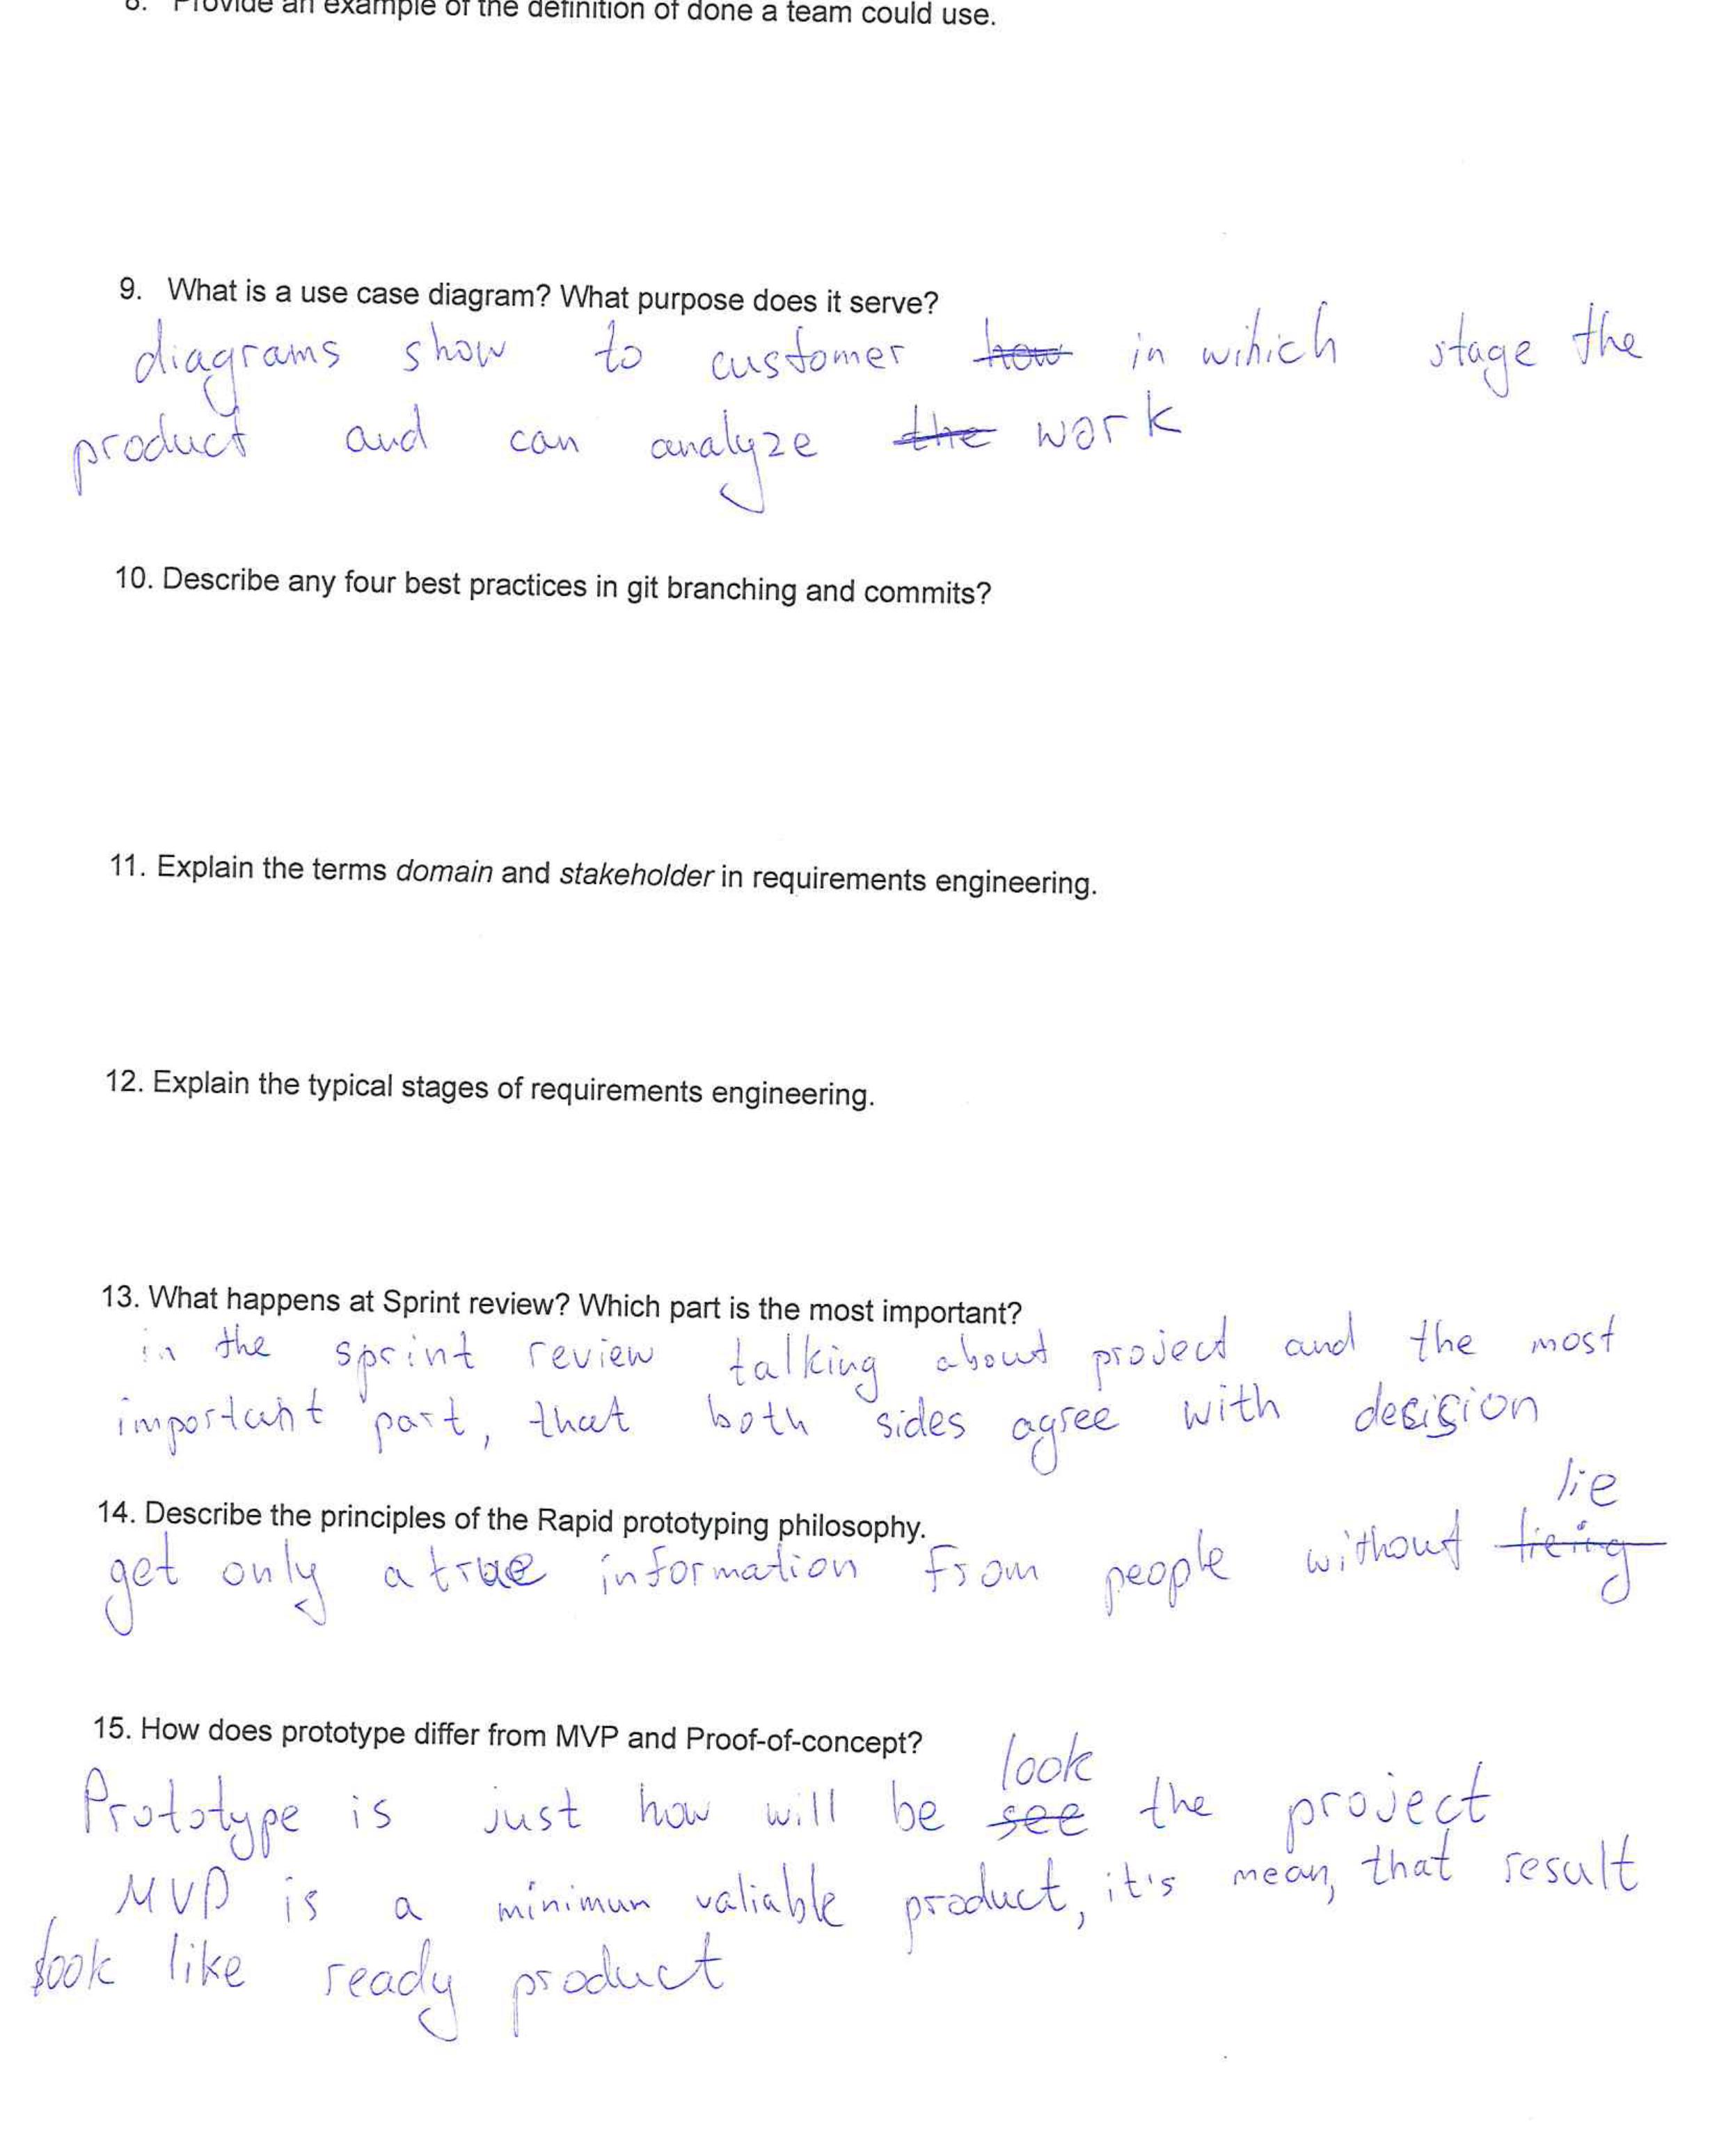 8. Provide an example of the definition of done a team could use.
9. What is a use case diagram? What purpose does it serve?
diagrams show to customer how in wihich stage the
product and can analyze the work
10. Describe any four best practices in git branching and commits?
11. Explain the terms domain and stakeholder in requirements engineering.
12. Explain the typical stages of requirements engineering.
13. What happens at Sprint review? Which part is the most important?
in the sprint review talking about project and the most
important part, that both sides agree with decision
14. Describe the principles of the Rapid prototyping philosophy.
lie
get only a true information from people without lieing
15. How does prototype differ from MVP and Proof-of-concept?
look
Prototype is just how will be see the project
MVP is a minimum valiable product, it's mean, that result
look like ready product